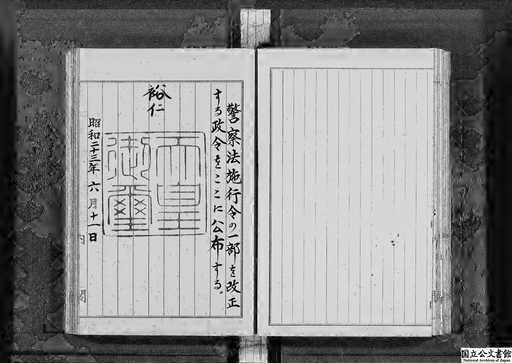 警察法施行令の一部を改正
する政令をここに公布する。
裕仁
天皇
御璽
昭和二十三年六月十一日
内閣
国立公文書館
National Archives of Japan